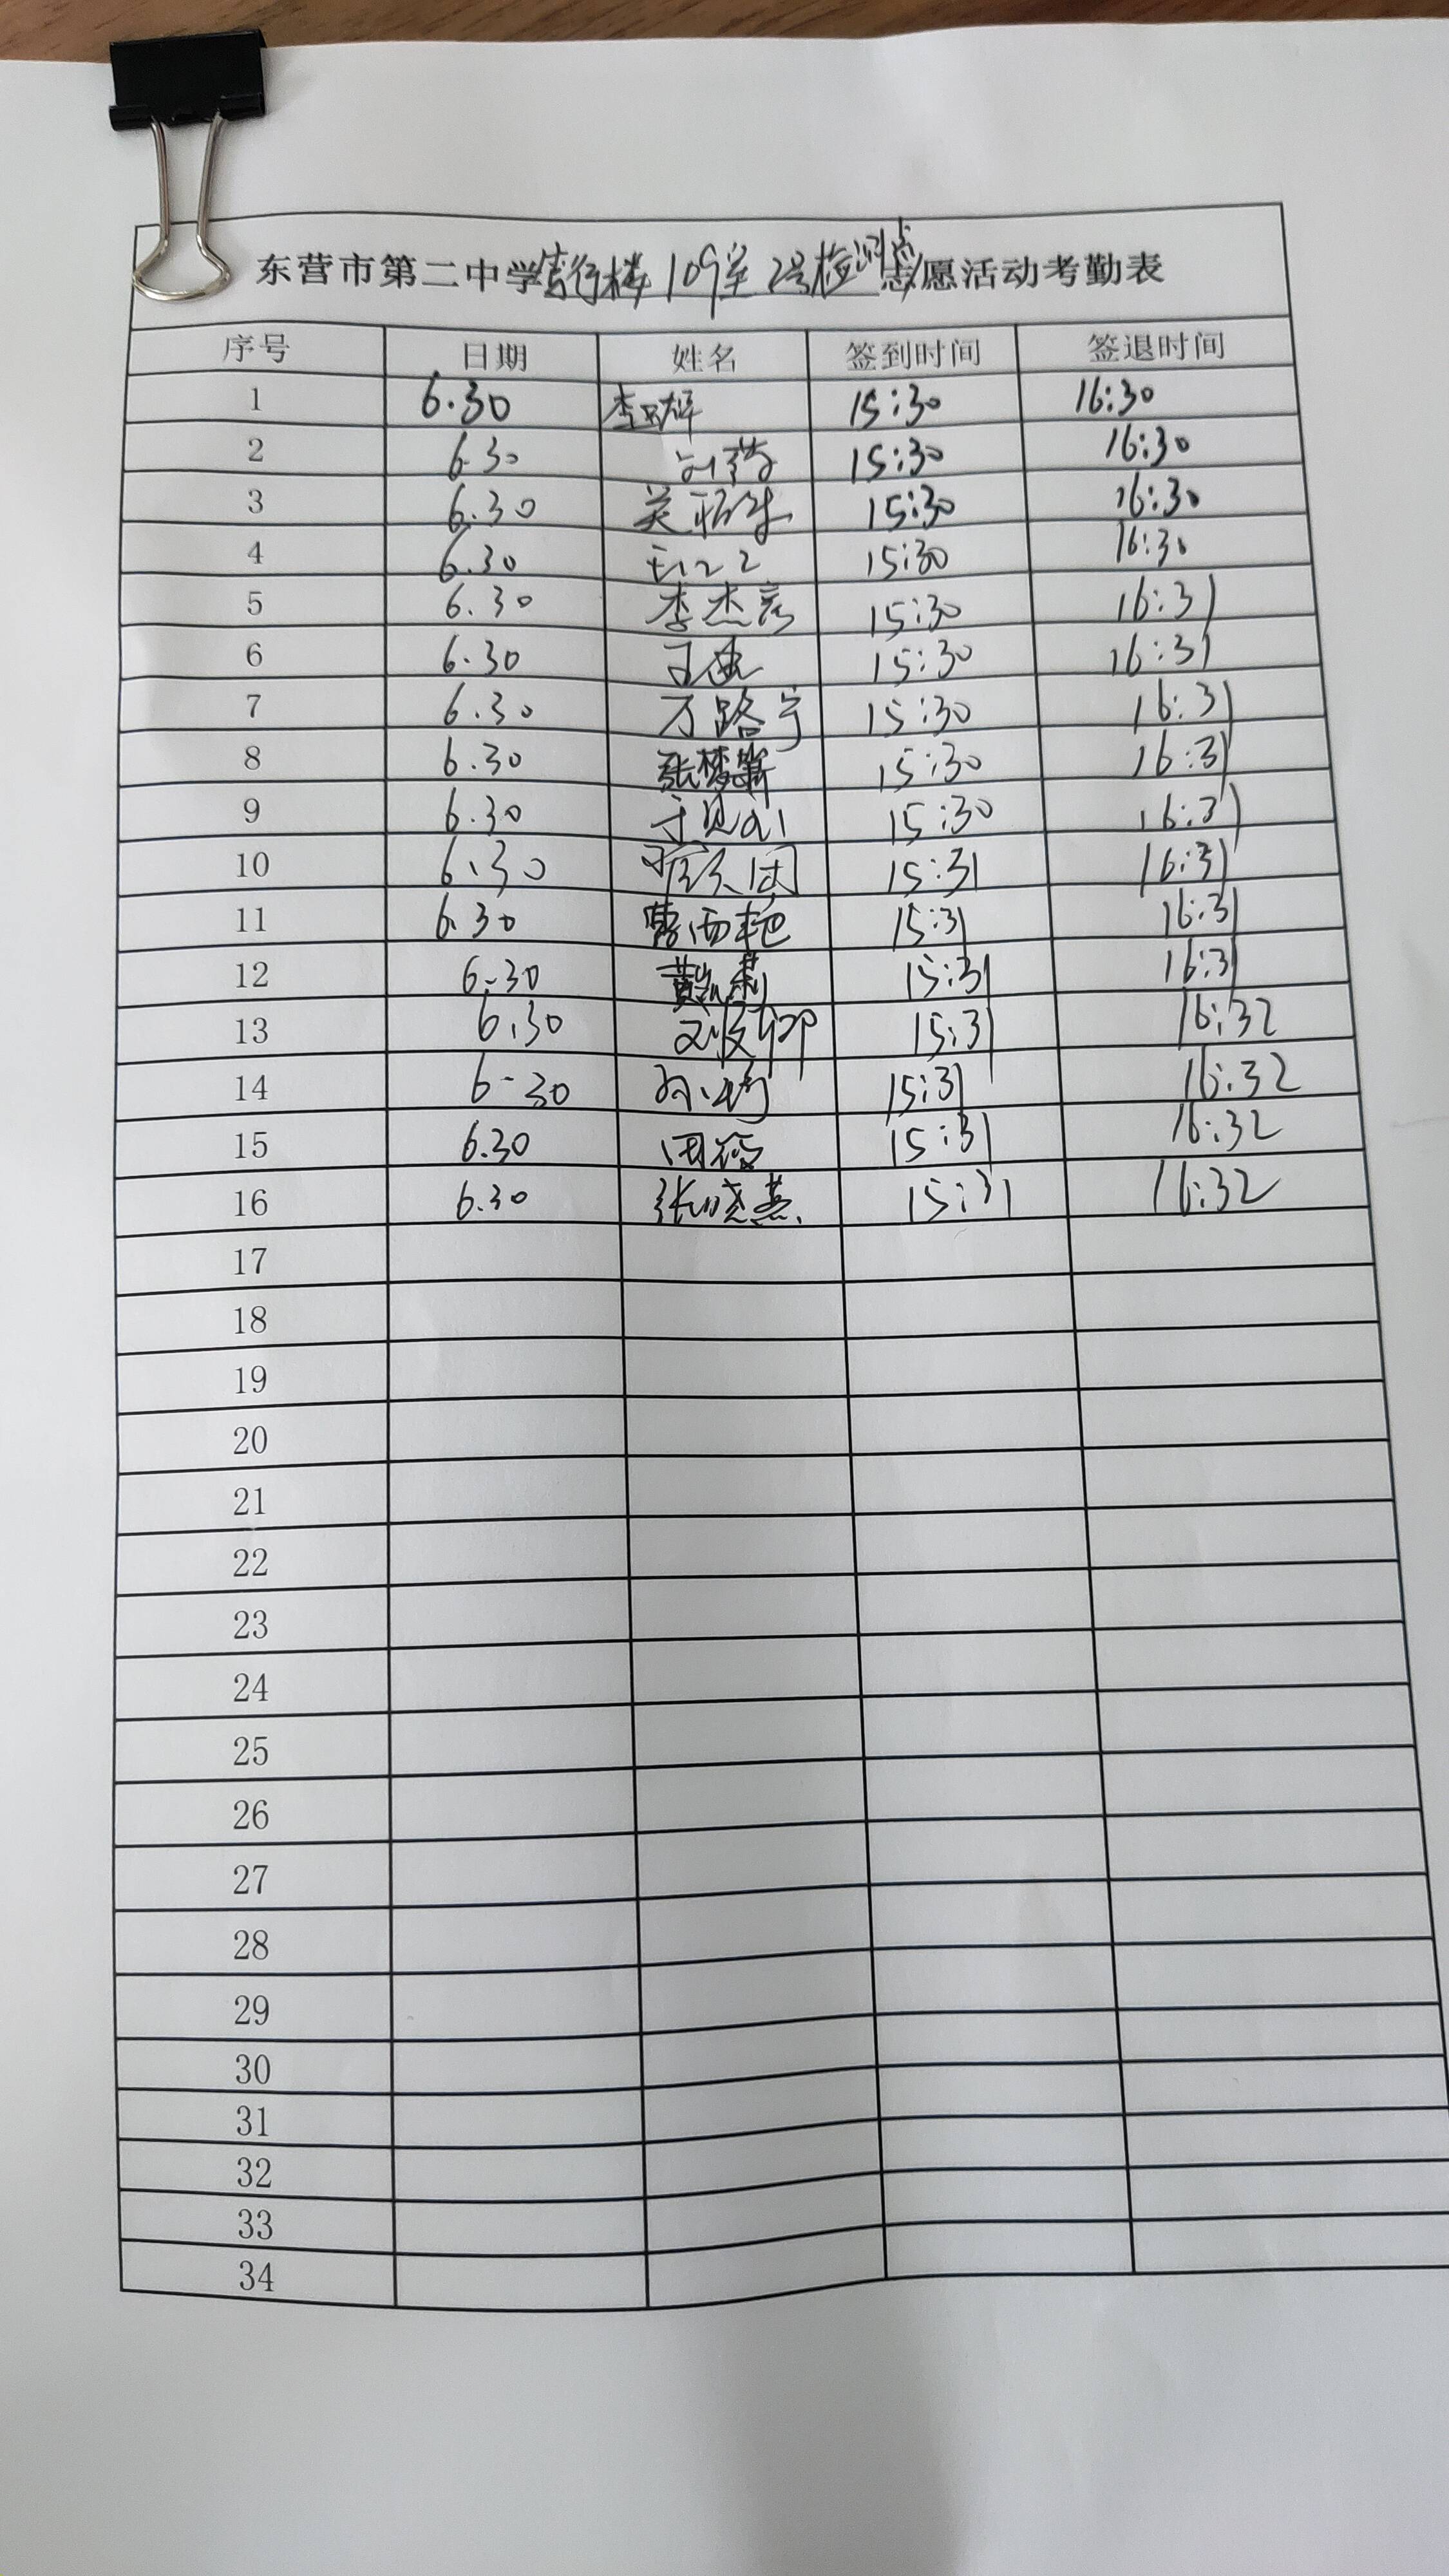 东营市第二中学 行楼109室2号检测点志愿活动考勤表
序号 日期 姓名 签到时间 签退时间
1 6.30 15:30 16:30
2 6.30 15:30 16:30
3 6.30 15:30 16:30
4 6.30 15:30 16:30
5 6.30 李杰彦 15:30 16:31
6 6.30 15:30 16:31
7 6.30 万路宁 15:30 16:31
8 6.30 张梦 15:30 16:31
9 6.30 15:30 16:31
10 6.30 15:31 16:31
11 6.30 15:31 16:31
12 6-30 黄 15:31 16:31
13 6.30 15:31 16:32
14 6-30 15:31 16:32
15 6.30 15:31 16:32
16 6.30 张晓燕 15:31 16:32
17
18
19
20
21
22
23
24
25
26
27
28
29
30
31
32
33
34